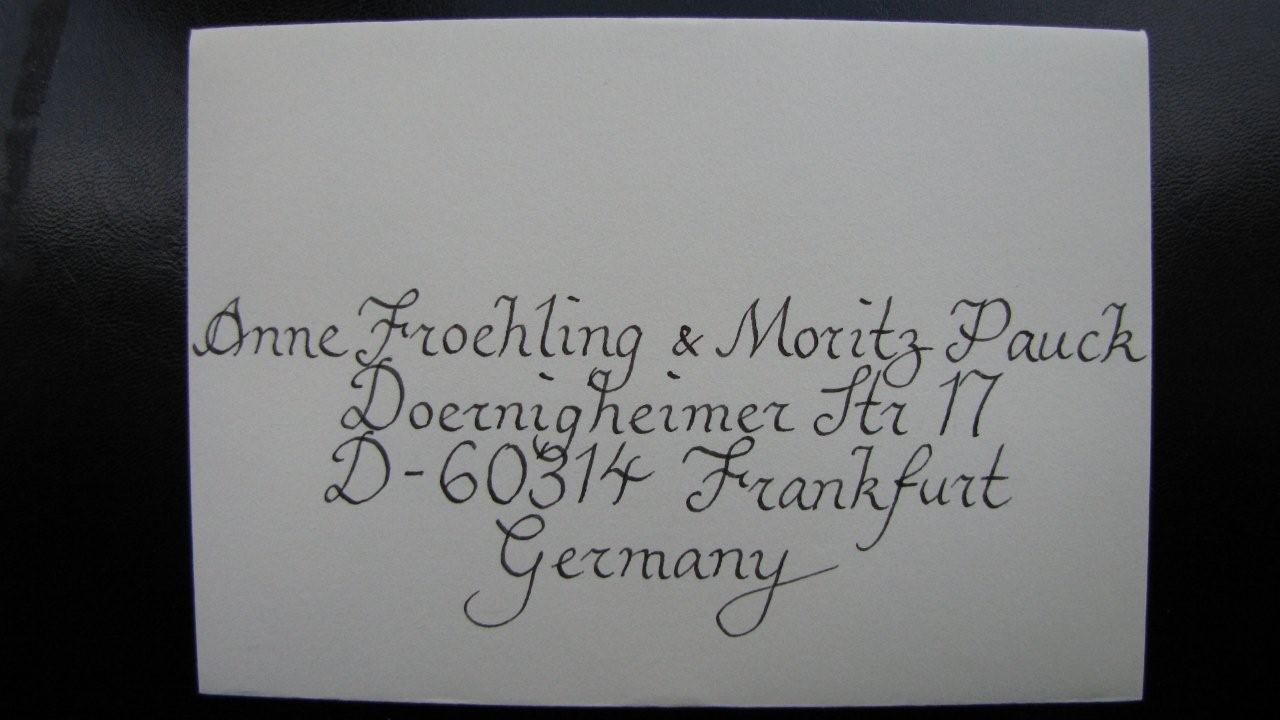 Anne Froehling & Moritz Pauck
Doernigheimer Str 17
D-60314 Frankfurt
Germany